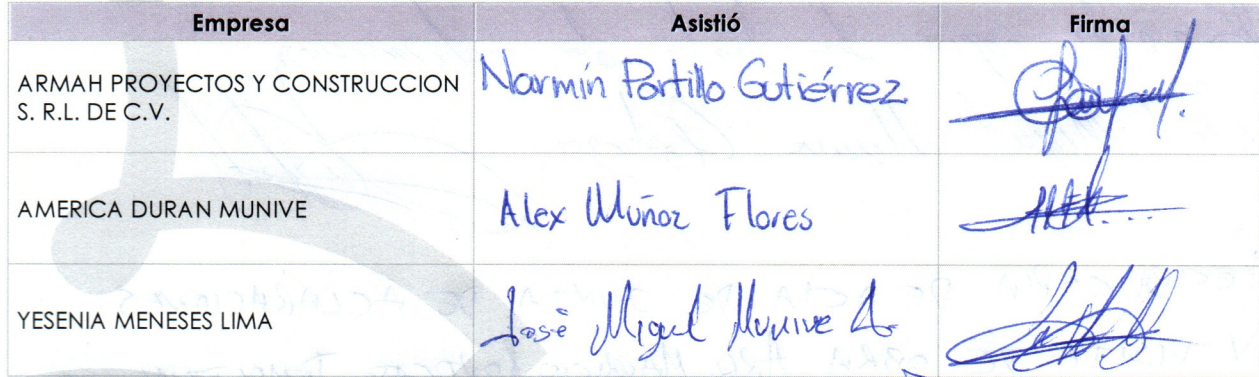 Empresa Asistió Firma
ARMAH PROYECTOS Y CONSTRUCCION Narmín Portillo Gutiérrez
S. R.L. DE C.V.
AMERICA DURAN MUNIVE Alex Muñoz Flores
YESENIA MENESES LIMA José Miguel Munive A.